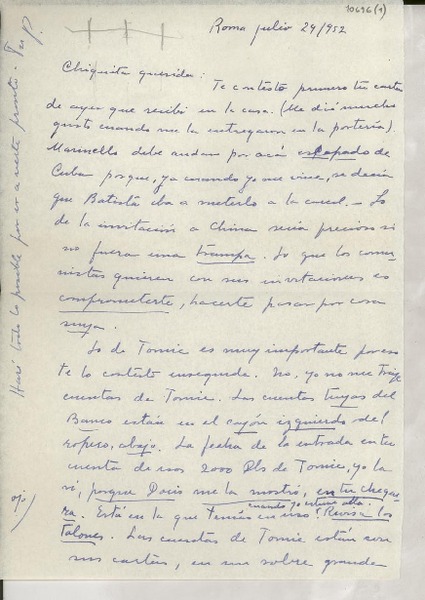 10696(1)
Roma julio 29/952
Chiquita querida:
Te contesto primero tu carta
de ayer que recibí en la casa. (Me dió mucho
gusto cuando me la entregaron en la portería).
Marinello debe andar por acá escapado de
Cuba porque, ya cuando yo me vine, se decía
que Batista iba a meterlo a la carcel. - Lo
de la invitación a China sería precioso si
no fuera una trampa. Lo que los comu-
nistas quieren con sus invitaciones es
comprometerte, hacerte pasar por cosa
suya.
Lo de Tomic es muy importante por eso
te lo contesto enseguida. No, yo no me traje
cuentas de Tomic. Las cuentas tuyas del
Banco están en el cajón izquierdo del
ropero, abajo. La fecha de la entrada en tu
cuenta de esos 2000 Dls de Tomic, yo la
vi, porque Doris me la mostró, en tu cheque-
cuando yo estuve allá.
ra. Está en la que tenías en uso! Revisa los
talones. Las cuentas de Tomic están con
sus cartas, en un sobre grande
Haré todo lo posible por ir a verte pronto. Tu P.